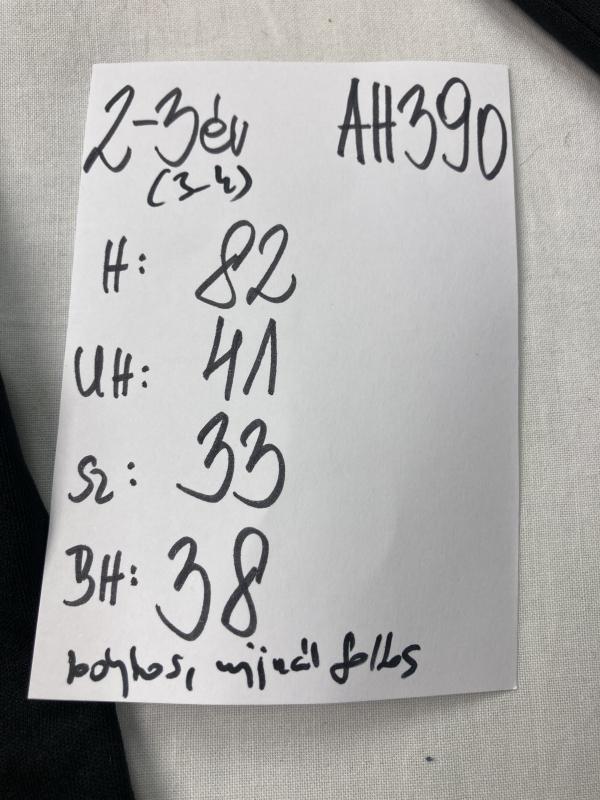 2-3év AH390
(3-4)
H: 82
UH: 41
Sz: 33
BH: 38
bolyhos, ujjnál foltos